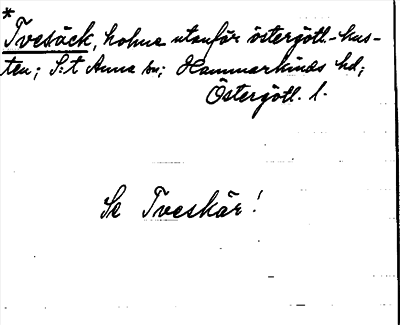 *
Tvesäck, holme utanför östergötl.-kus-
ten; S:t Anna sn; Hammarkinds hd;
Östergötl. l.
Se Tveskär!